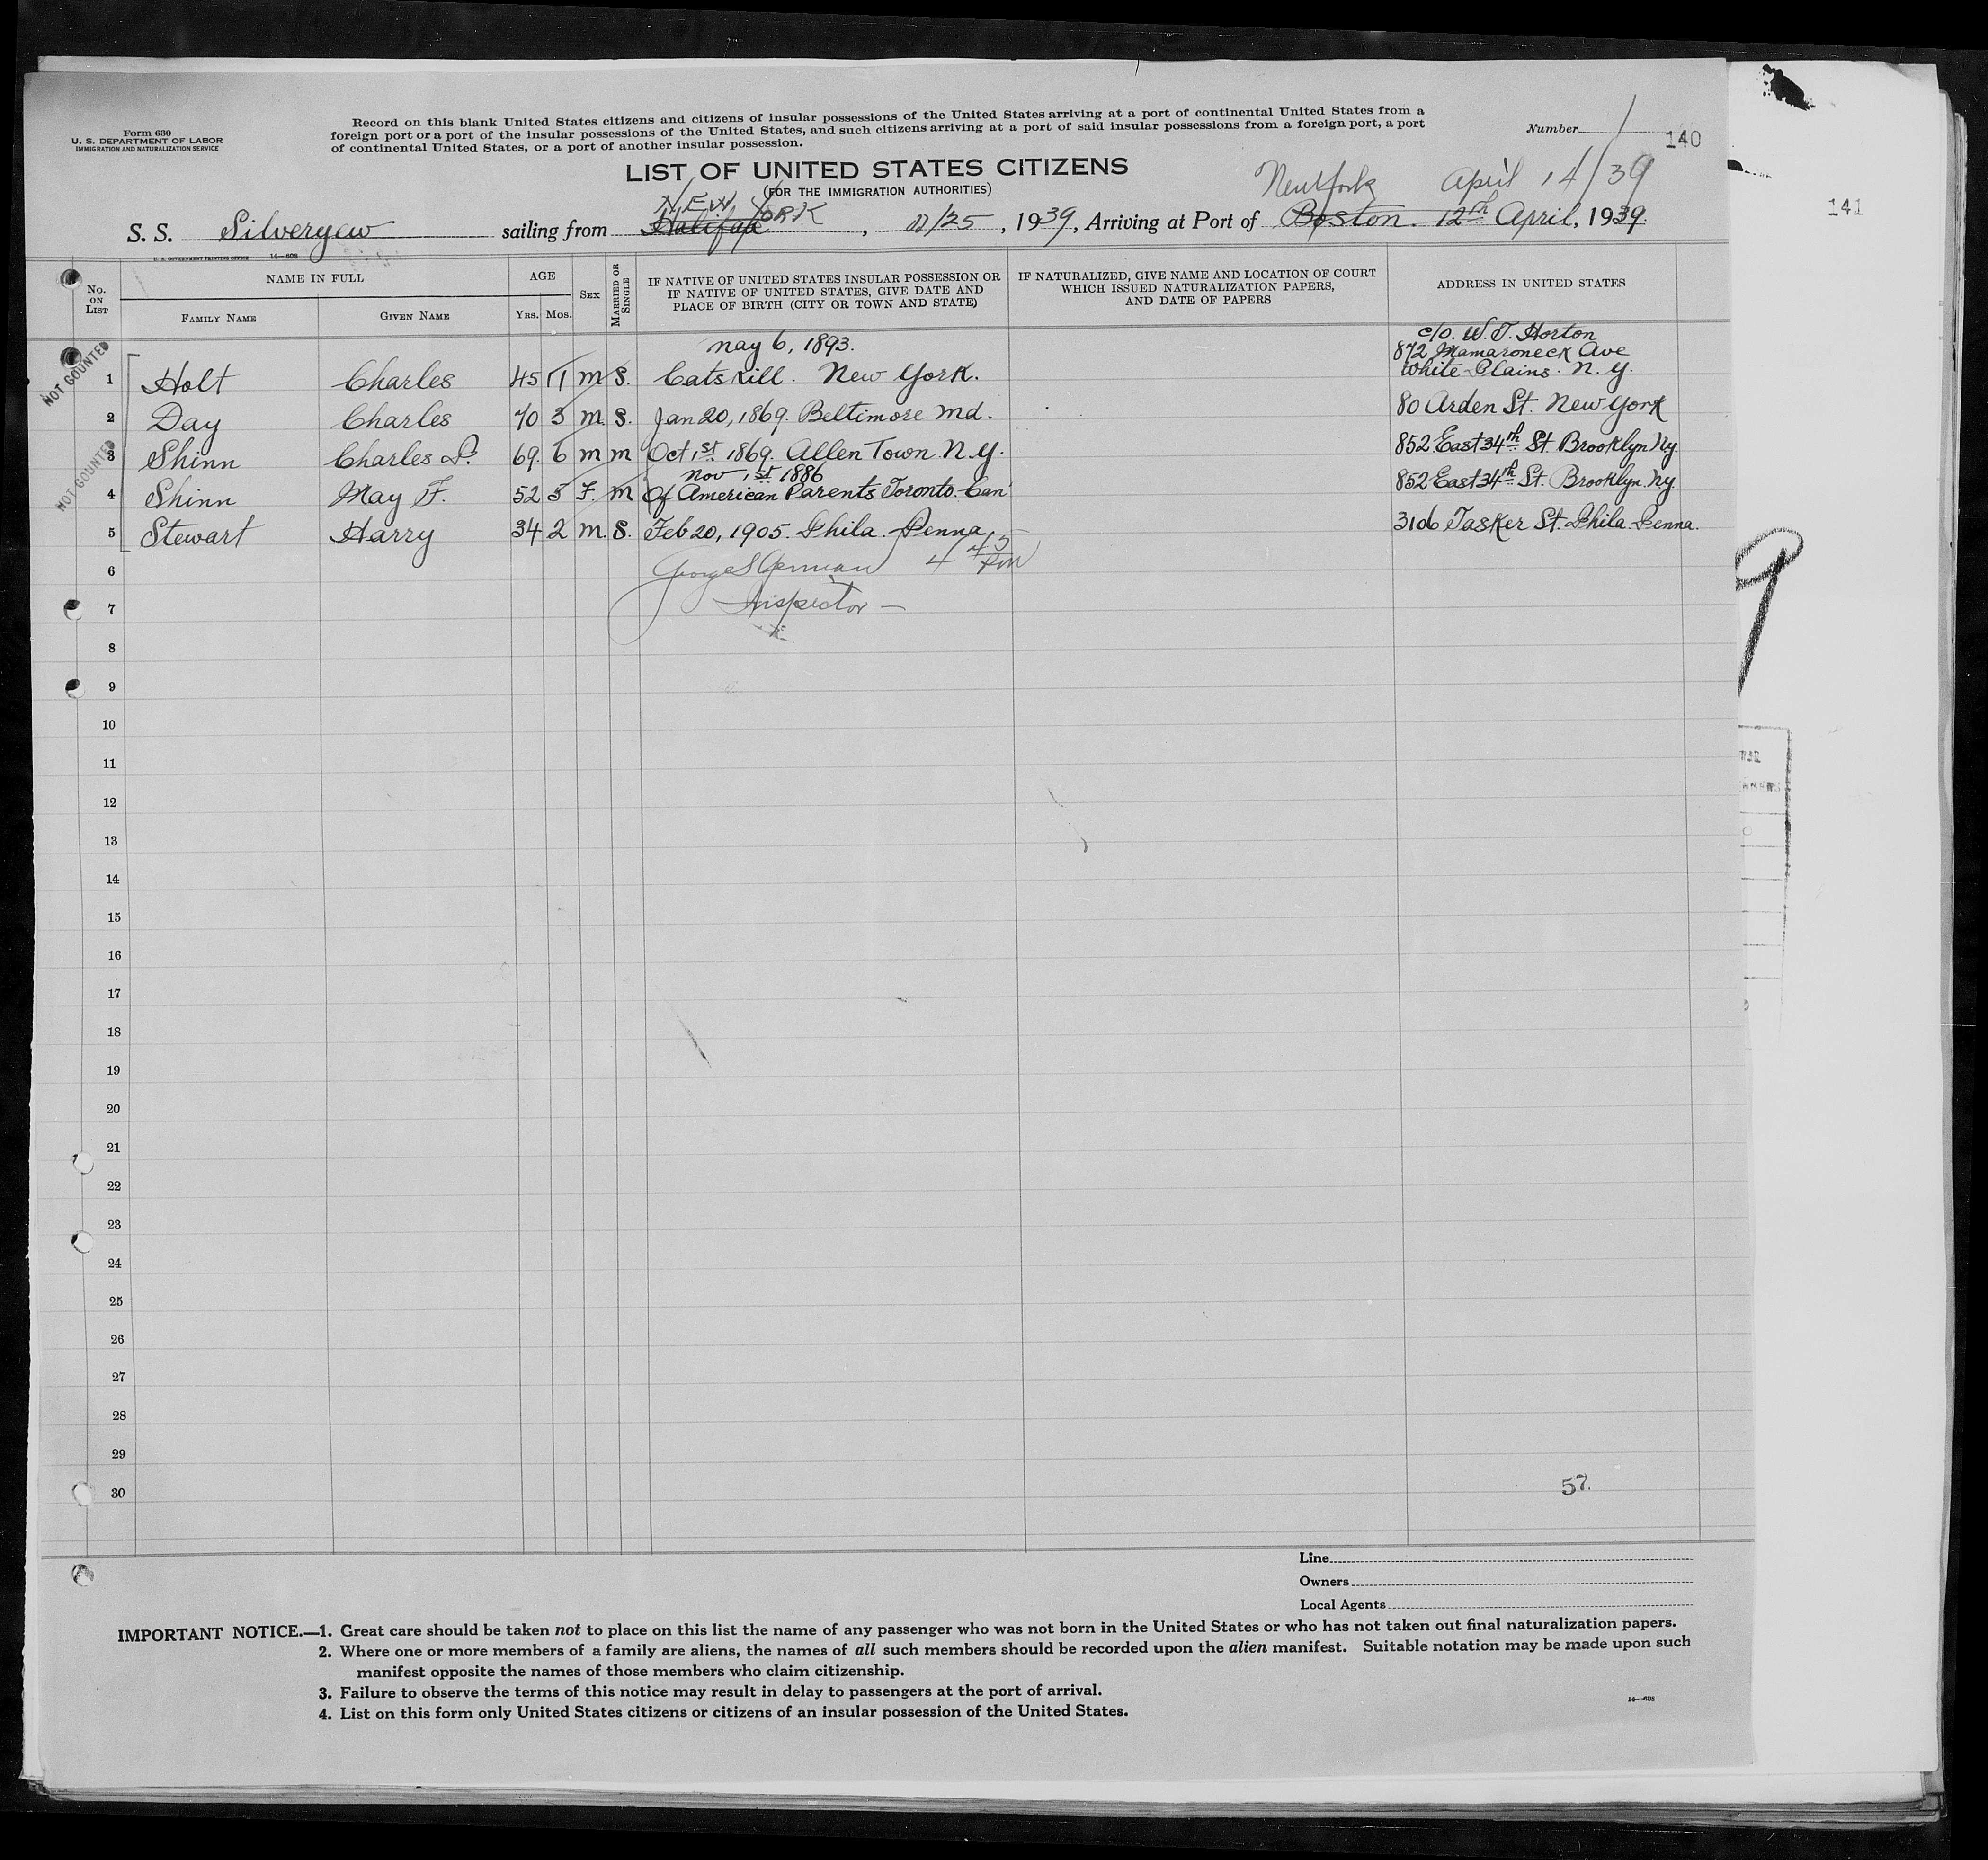 Form 630
U. S. DEPARTMENT OF LABOR
IMMIGRATION AND NATURALIZATION SERVICE
Record on this blank United States citizens and citizens of insular possessions of the United States arriving at a port of continental United States from a
foreign port or a port of the insular possessions of the United States, and such citizens arriving at a port of said insular possessions from a foreign port, a port
of continental United States, or a port of another insular possession.
Number
140
141
LIST OF UNITED STATES CITIZENS
(FOR THE IMMIGRATION AUTHORITIES)
New York April 14/39
NEW YORK
S. S. Silveryew sailing from Halifax, 11/25, 1939, Arriving at Port of Boston. 12th April, 1939.
U. S. GOVERNMENT PRINTING OFFICE 14—608
No. ON LIST
NAME IN FULL
FAMILY NAME
GIVEN NAME
AGE
YRS. MOS.
SEX
MARRIED OR SINGLE
IF NATIVE OF UNITED STATES INSULAR POSSESSION OR
IF NATIVE OF UNITED STATES, GIVE DATE AND
PLACE OF BIRTH (CITY OR TOWN AND STATE)
IF NATURALIZED, GIVE NAME AND LOCATION OF COURT
WHICH ISSUED NATURALIZATION PAPERS,
AND DATE OF PAPERS
ADDRESS IN UNITED STATES
NOT COUNTED
NOT COUNTED
may 6, 1893. c/o. W. T. Horton
872 Mamaroneck Ave
1 Holt Charles 45 11 m S. Catskill. New York. White Plains. N. Y.
2 Day Charles 70 3 m. S. Jan 20, 1869. Beltimore Md. 80 Arden St. New York
3 Shinn Charles P. 69. 6 m m Oct 1st 1869. Allen Town N.Y. 852 East 34th St. Brooklyn Ny
Nov 1st 1886
4 Shinn May F. 52 5 F. m Of American Parents Toronto-Can 852 East 34th St. Brooklyn. Ny
5 Stewart Harry 34 2 m. S. Feb 20, 1905. Phila. Penna 3106 Tasker St. Phila. Penna.
6 George S German 4 45 PM
7 Inspector —
8
9
10
11
12
13
14
15
16
17
18
19
20
21
22
23
24
25
26
27
28
29
30
57.
Line
Owners
Local Agents
IMPORTANT NOTICE.—1. Great care should be taken not to place on this list the name of any passenger who was not born in the United States or who has not taken out final naturalization papers.
2. Where one or more members of a family are aliens, the names of all such members should be recorded upon the alien manifest. Suitable notation may be made upon such
manifest opposite the names of those members who claim citizenship.
3. Failure to observe the terms of this notice may result in delay to passengers at the port of arrival.
4. List on this form only United States citizens or citizens of an insular possession of the United States.
14—608